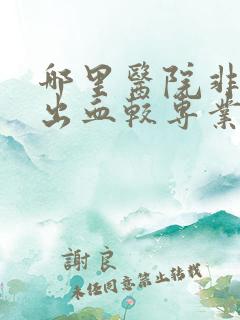 哪里醫院非
出血較專業
謝良
未经同意禁止转载